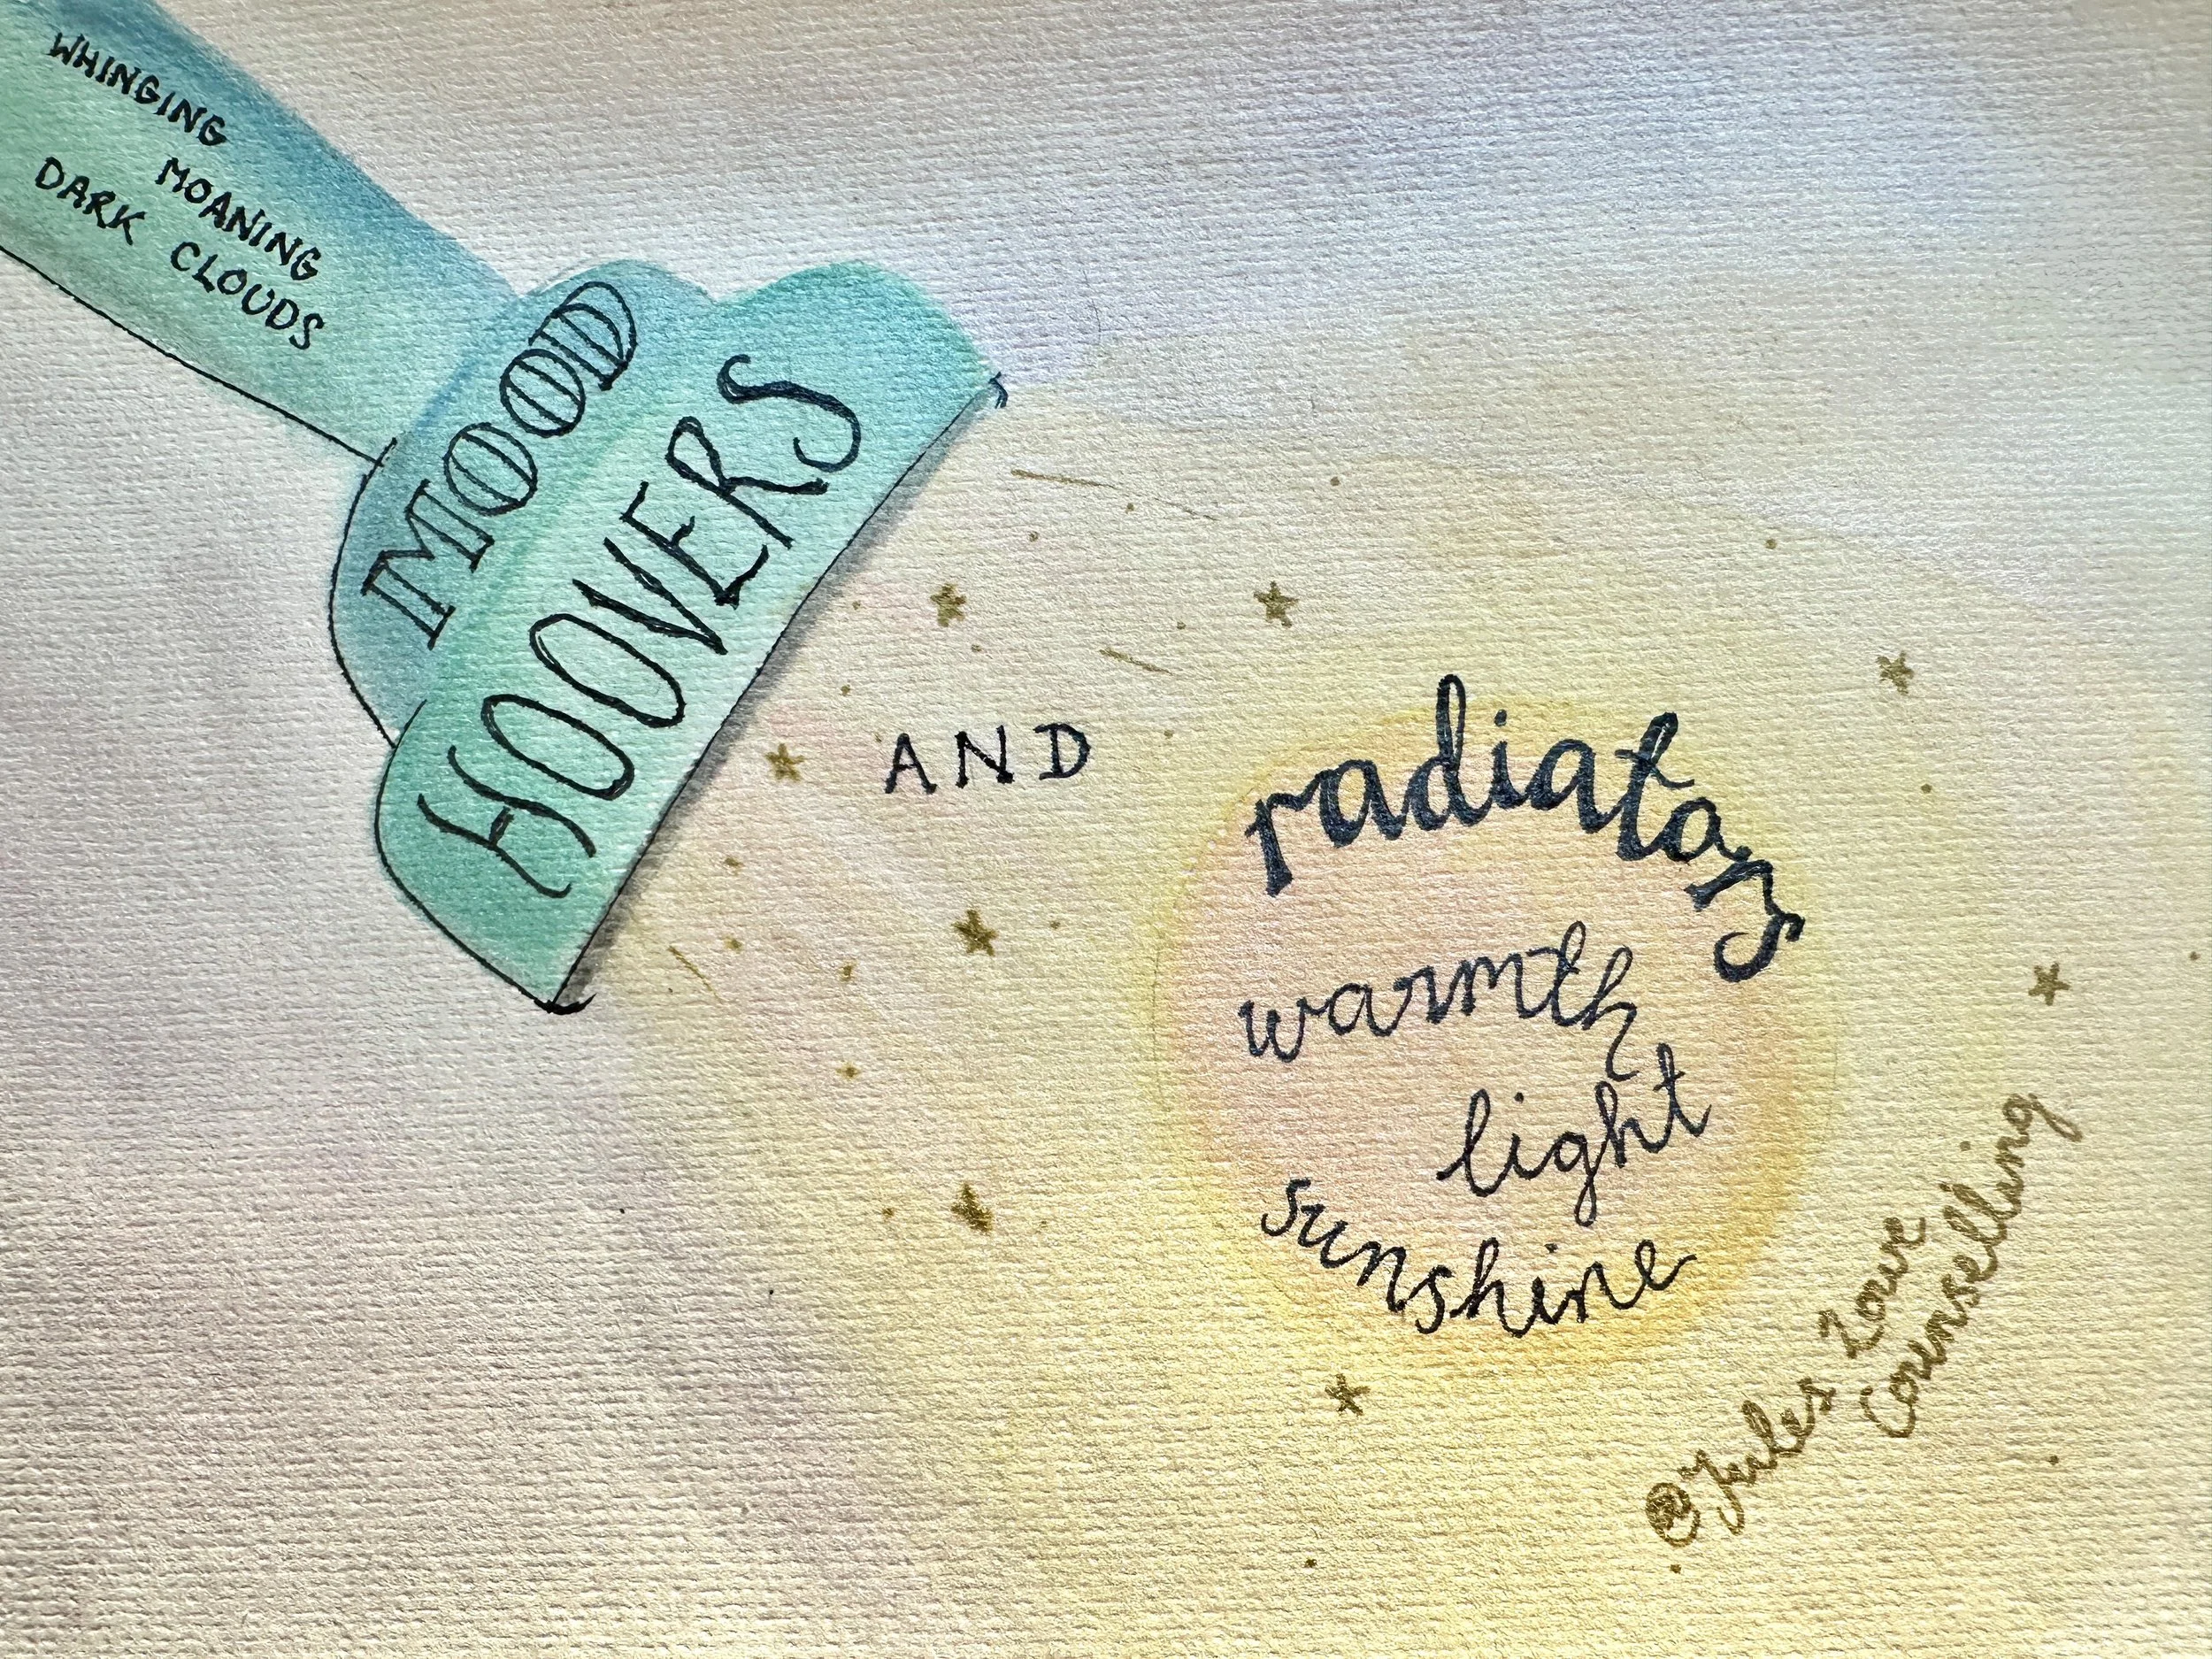 WHINGING
MOANING
DARK CLOUDS
MOOD
HOOVERS
AND
radiators
warmth
light
sunshine
@Jules Love
Counselling